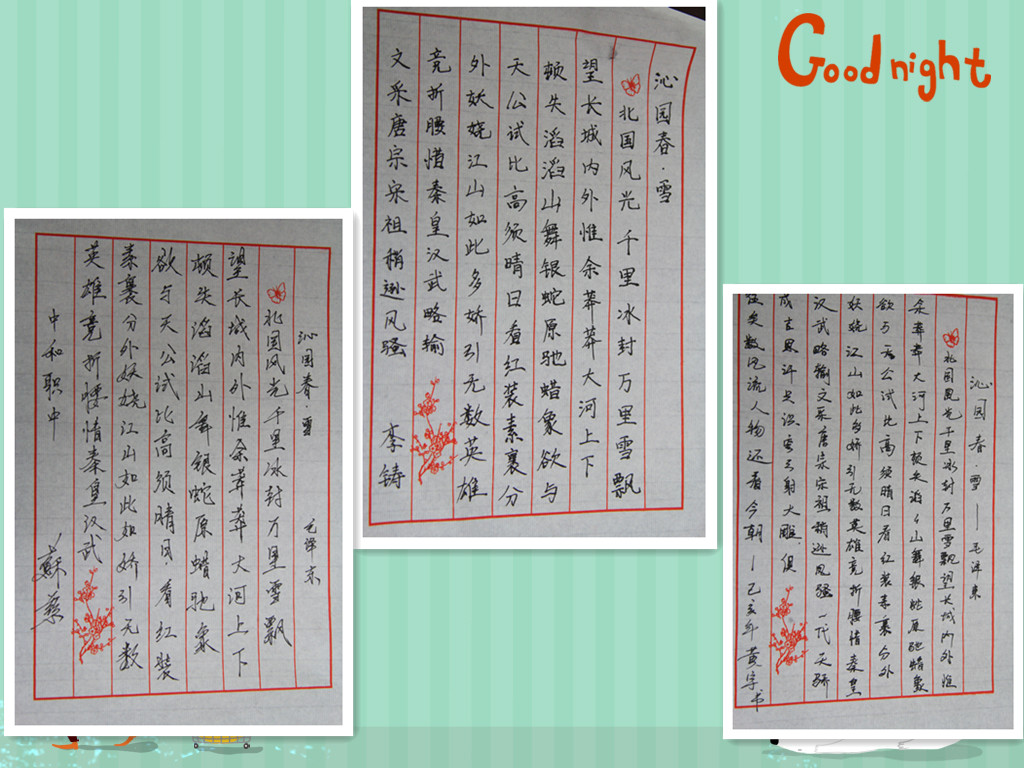 Good night
沁园春·雪 毛泽东
北国风光千里冰封万里雪飘
望长城内外惟余莽莽大河上下
顿失滔滔山舞银蛇原蜡驰象
欲与天公试比高须晴日,看红装
素裹分外妖娆江山如此如娇引无数
英雄竞折腰惜秦皇汉武
中和职中
沁园春·雪
北国风光千里冰封万里雪飘
望长城内外惟余莽莽大河上下
顿失滔滔山舞银蛇原驰蜡象欲与
天公试比高须晴日看红装素裹分
外妖娆江山如此多娇引无数英雄
竞折腰惜秦皇汉武略输
文采唐宗宋祖稍逊风骚 李铸
沁园春·雪——毛泽东
北国风光千里冰封万里雪飘望长城内外惟
余莽莽大河上下顿失滔々山舞银蛇原驰蜡象
欲与天公试比高须晴日看红装素裹分外
妖娆江山如此多娇引无数英雄竞折腰惜秦皇
汉武略输文采唐宗宋祖稍逊风骚一代天骄
成吉思汗只识弯弓射大雕,俱
往矣数风流人物还看今朝—己亥年黄宇书